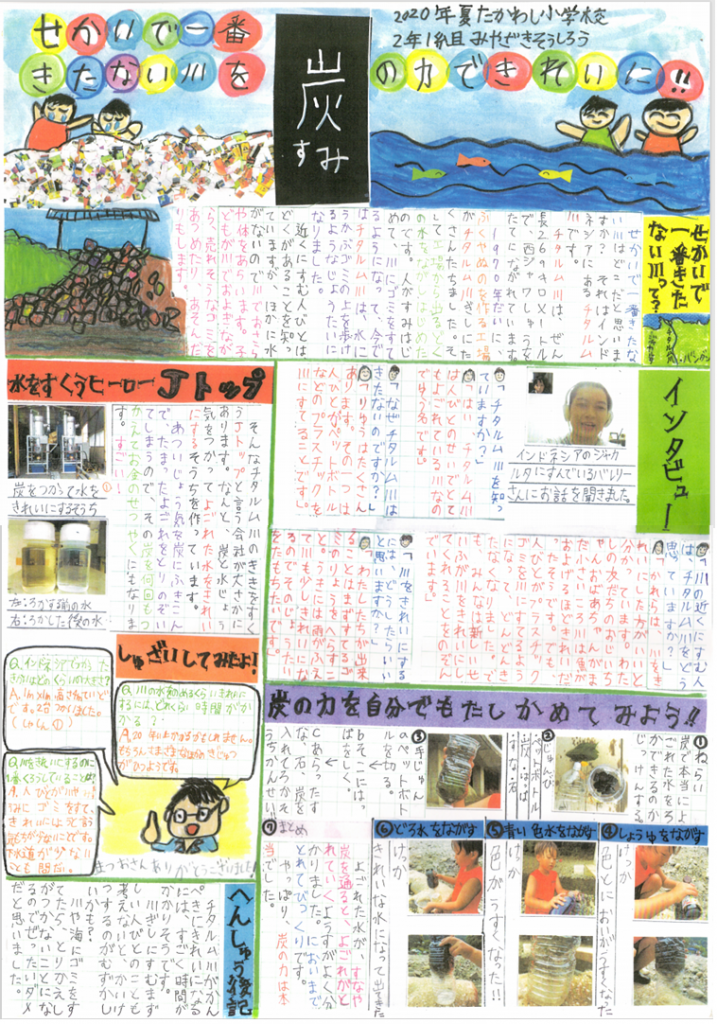 2020年夏たかわし小学校
2年1組 みやざきそうしろう
せかいで一番
きたない川を
炭
すみ
の力できれいに!!
せかいで
一番きた
ない川って?
せかいで一番きたな
い川はどこだと思いま
すか? それはインド
ネシアにあるチタルム
川です。
チタルム川は、ぜん
長269キロメートル
で、西ジャワしゅうを
たてにながれています。
1970年だいに、
ふくやぬのを作る工場
がチタルム川ぎしにた
くさんたちました。そ
して工場から出るどく
の水をながしはじめた
のです。人がすみはじ
めて、川にゴミをすて
るようになって、今で
はチタルム川は、水に
うかぶゴミの上を歩け
るようなじょうたいに
なりました。
近くにすむ人びとは
どくがあることを知っ
ていますが、ほかに水
がないので、川でおさら
や体をあらいます。子
どもが川でおよぎなが
ら、売れそうなゴミを
あつめたり、あそんだ
りもします。
インタビュー
インドネシアのジャカ
ルタにすんでいるバレリー
さんにお話を聞きました。
「チタルム川を知っ
ていますか?」
「はい。チタルム川
は人びとのせいでとて
もよごれている川なの
でゆう名です。」
「なぜチタルム川は
きたないのですか?」
「りゆうはたくさん
あります。その一つは
人びとがペットボトル
などのプラスチックを
川にすてることです。」
「川の近くにすむ人
は、チタルム川をどう
思っていますか?」
「かれらは、川をき
れいにした方がいいと
分かっています。わた
しの友だちのおじいち
ゃんおばあちゃんがま
だ小さいころ川は魚が
およげるほどきれいだ
ったそうです。でも、
人びとがプラスチック
ゴミを川にすてるよう
になって、どんどんき
たなくなりました。で
も、みんなは新しいせ
いふが川をきれいにし
てくれるとしんじてい
ます。」
「川をきれいにする
にはどうしたらいい
と思いますか?」
「わたしたちが出来
ることはまずすてるゴ
ミのりょうをへらすこ
と。うきには雨がふえ
て川も少しきれいにな
るのでそのじょうたい
をたもちたいです。」
水をすくうヒーローJトップ
そんなチタルム川のききをすく
うJトップと言う会社が大さかに
あります。なんと、炭と水じょう
気をつかって、よごれた水をきれい
にするそうちを作っています。
あついじょう気を炭にふきこん
で、たまったよごれをとりのぞい
てしまうので、その炭を何回もつ
かえてお金のせつやくにもなりま
す。すごい!
炭をつかって水を①
きれいにするそうち
左:ろかする前の水
右:ろかした後の水
しゅざいしてみたよ!
炭の力を自分でもたしかめてみよう!!
①ねらい
炭で本当によ
ごれた水をろ
かできるのか
じっけんする。
②じゅんび
ペットボトル
炭・はっぱ
すな・石
③手じゅん
⑦まとめ
よごれた水が、すなや
炭を通ると、よごれがと
れていくようすがよく分
かりました。においまで
とれてびっくりです。
やっぱり、炭の力は本
当でした。
④しょうゆをながす
けっか
色とにおいがうすくなった
⑤青い色水をながす
けっか
色がうすくなった!!
⑥どろ水をながす
けっか
きれいな水になって出てきた
へんしゅう後記
チタルム川がかん
ぺきにきれいになる
には、すごく時間が
かかりそうです。
川ぎしにすむまず
しい人びとのことも
考えないと、かいけ
つするのがむずかし
いかも?
川や海にゴミをす
てたら、とりかえし
がつかないことにな
るのでぜったいダメ
だと思いました。